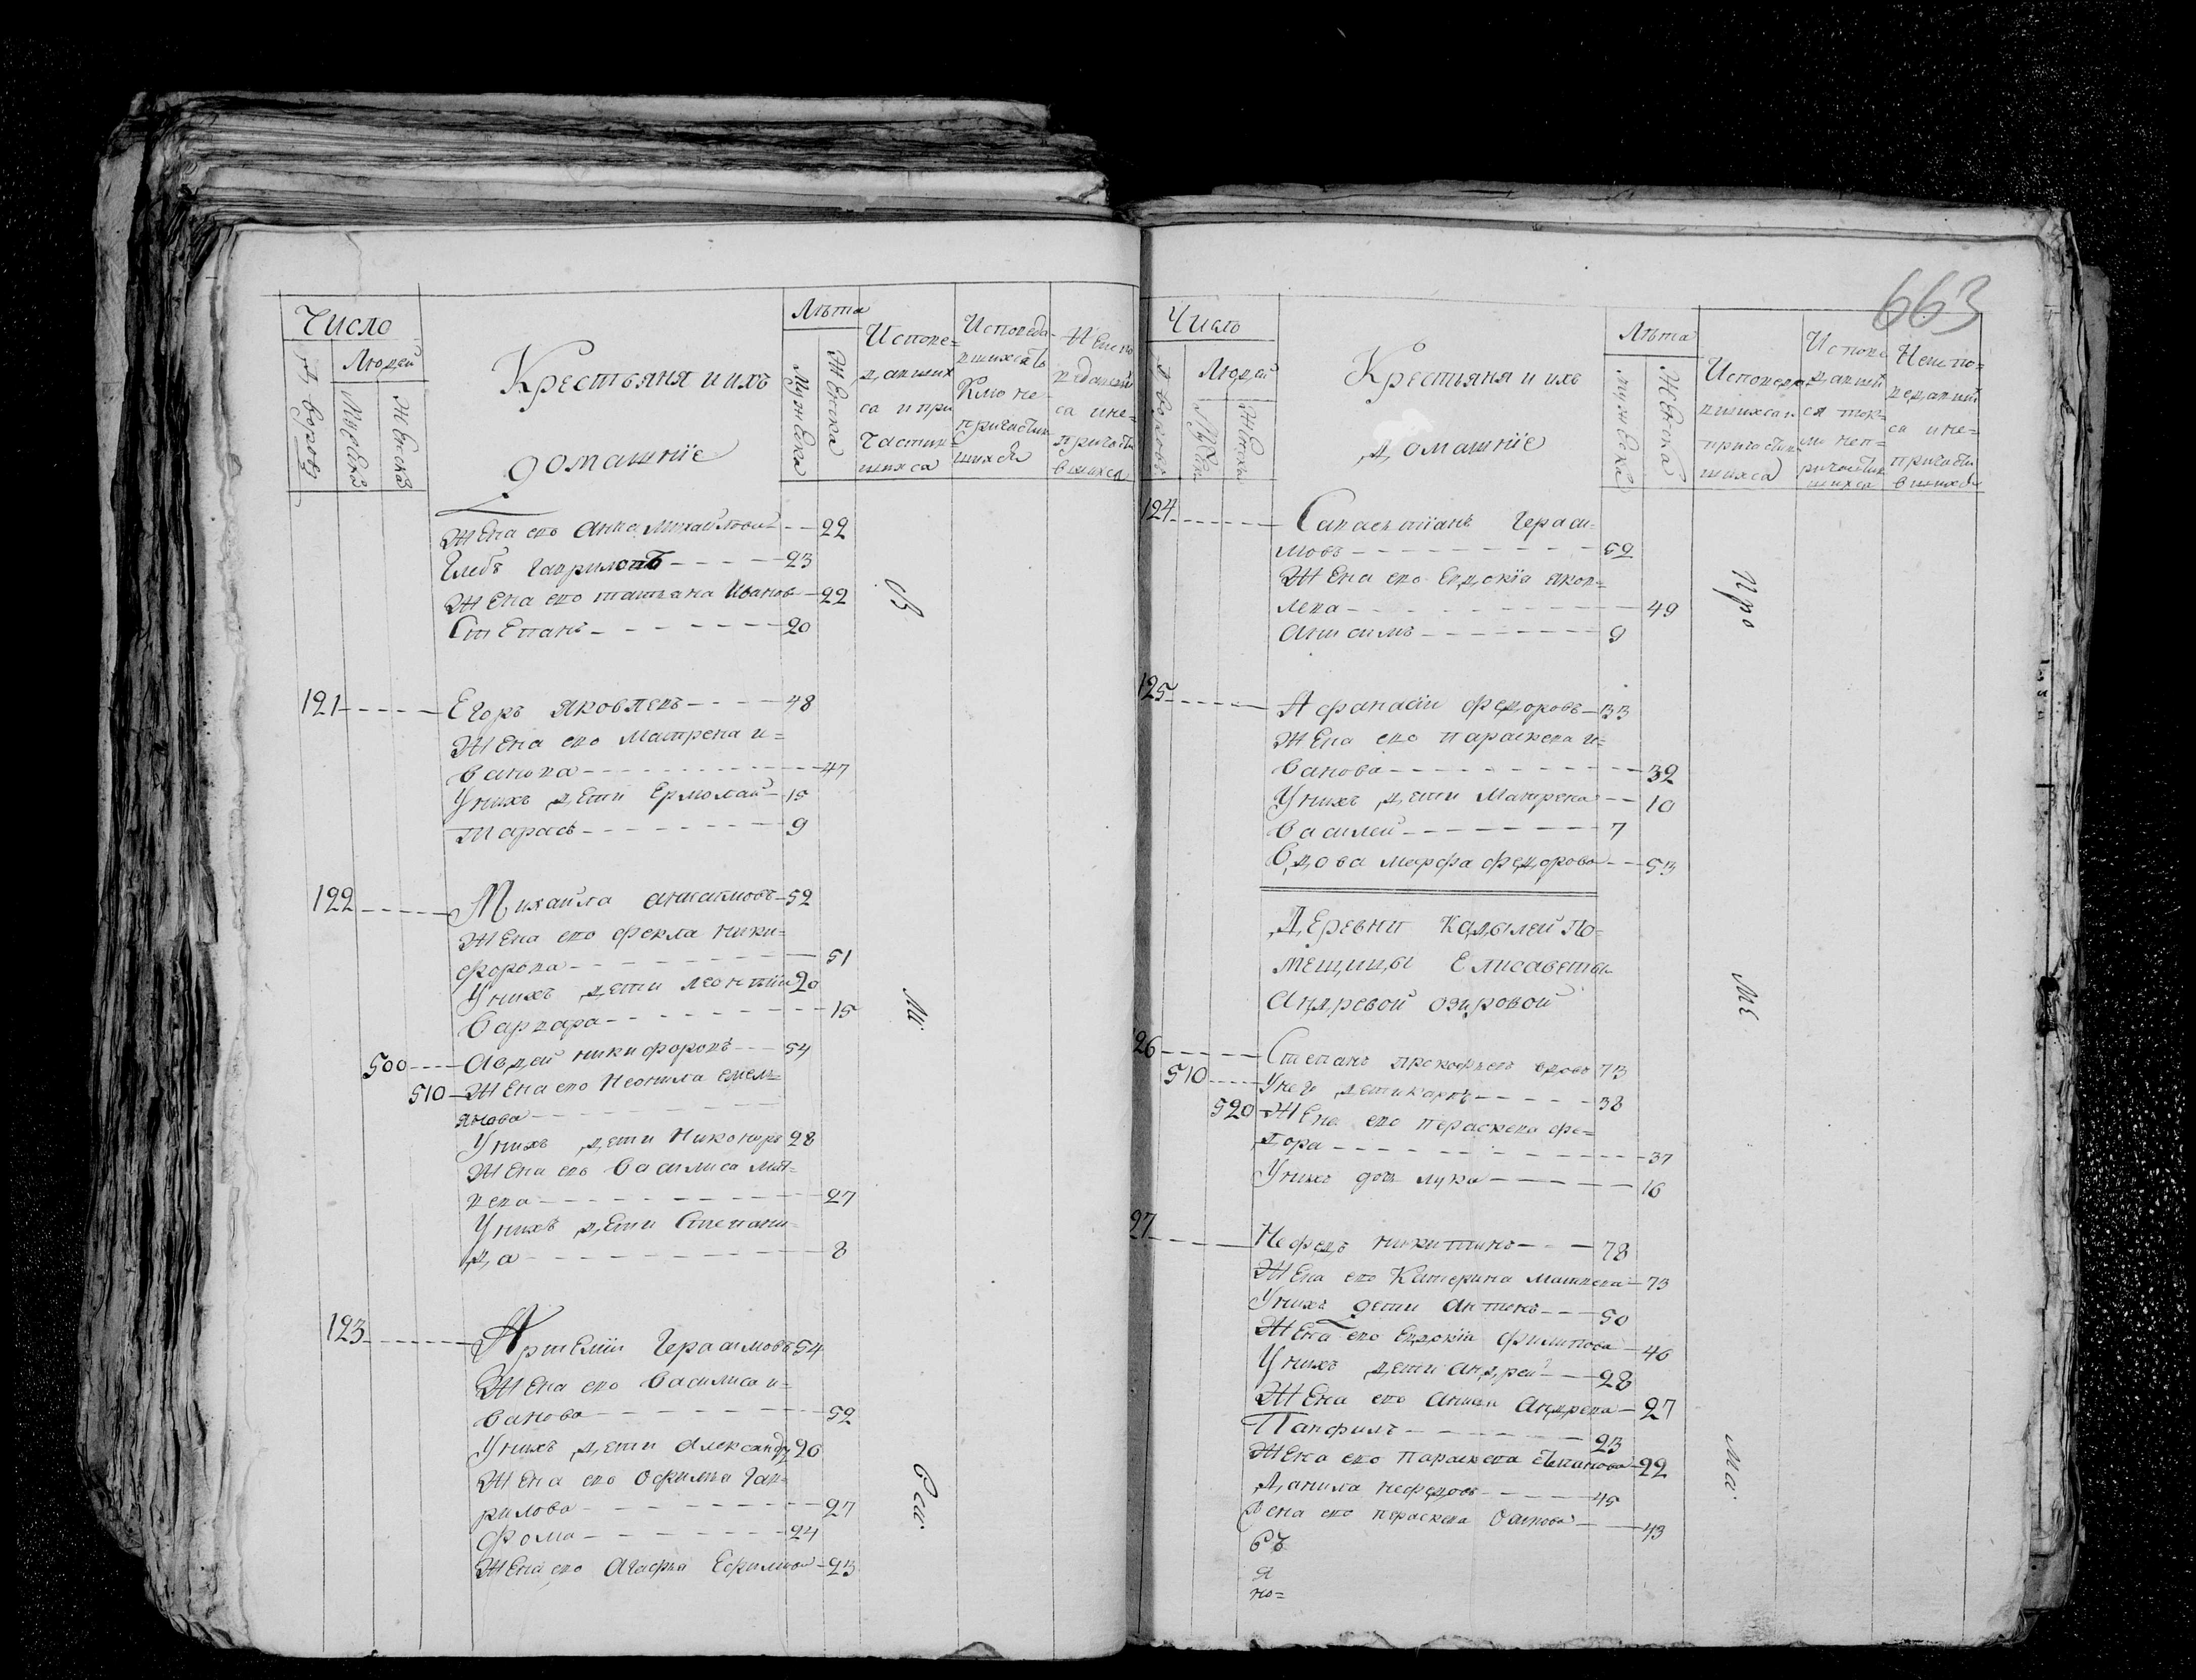 Число
Людей
Дворовъ
Мужеска
Женска
Крестьяня и ихъ
домашніе
Лѣта
Мужеска
Женска
Испове=
давших
са и при
частив=
шихса
Исповеда
вшихсатъ
Кмо не=
причастив
шихся
Неиспо
ведавши
са и не=
причасти
вшихса
Жена его Анна Михайлова - - 22
Глебъ Гавриловъ - - - - 23
Жена его татьяна Иванова - 22
Степанъ - - - - - 20
121 - - - - Егоръ яковлевъ - - - - 48
Жена его Матрена и=
ванова - - - - - - 47
У нихъ дети Ермолай - 15
тарасъ - - - - - - 9
122 - - - - Михайла анисимовъ - 52
Жена его фекла ники=
форова - - - - - - 51
У нихъ дети леонтий 20
Варвара - - - - - - 15
500 - - - - Авдей никифоровъ - - - 54
510 - Жена его Неонила емель=
янова - - - - - -
У нихъ дети Никоноръ 28
Жена его Василиса мат=
вева - - - - - - 27
У нихъ дети Степани=
да - - - - - - 8
123 - - - - Артемии Герасимовъ 54
Жена его Василиса и=
ванова - - - - - - 52
У нихъ дети Александръ 26
Жена его Офимья Гав=
рилова - - - - - - 27
Фома - - - - - - 24
Жена его Агафья Ефимова - 23
В
Ми
Вси
663
Число
Людей
Дворовъ
Мужеск
Женска
Крестьяня и ихъ
домашніе
Лѣта
мужеска
Женска
Исповеда
вшихса и
причастив
шихса
Испове
давши
ся ток=
мо неп=
ричастив
шихса
Неиспо=
ведавши
са и не=
причасти
вшихся
124 - - - - Савастіанъ Гераси=
мовъ - - - - - - 52
Жена его Евдокія яков=
лева - - - - - - 49
Анисимъ - - - - - - 9
125 - - - - Афанасіи федоровъ - 33
Жена его параскева и=
ванова - - - - - - 32
У нихъ дети Матрена - - 10
Василей - - - - - - 7
Вдова марфа федорова - - 53
Деревни Кадылей По=
мещицы Елисаветы
Андревой озировой
126 - - - - Степанъ прокофьевъ вдовъ 73
510 - - - У него дети карпъ - - - - 38
520 - Жена его параскева фе=
дора - - - - - - 37
У нихъ дочь лука - - - - 16
127 - - - - Нефедъ никитинъ - - - 78
Жена его Катерина матвева - 73
У нихъ дети Антонъ - - - 50
Жена его Евдокіа филипова - 46
У нихъ дети Андрей - - - 28
Жена его Анна Андрева - 27
Панфилъ - - - - - - 23
Жена его Параскева степанова - 22
Данила нефедовъ - - - - 45
Жена его параскева Осипова - - 43
бъ
я
но=
Про
МЕ
Ма